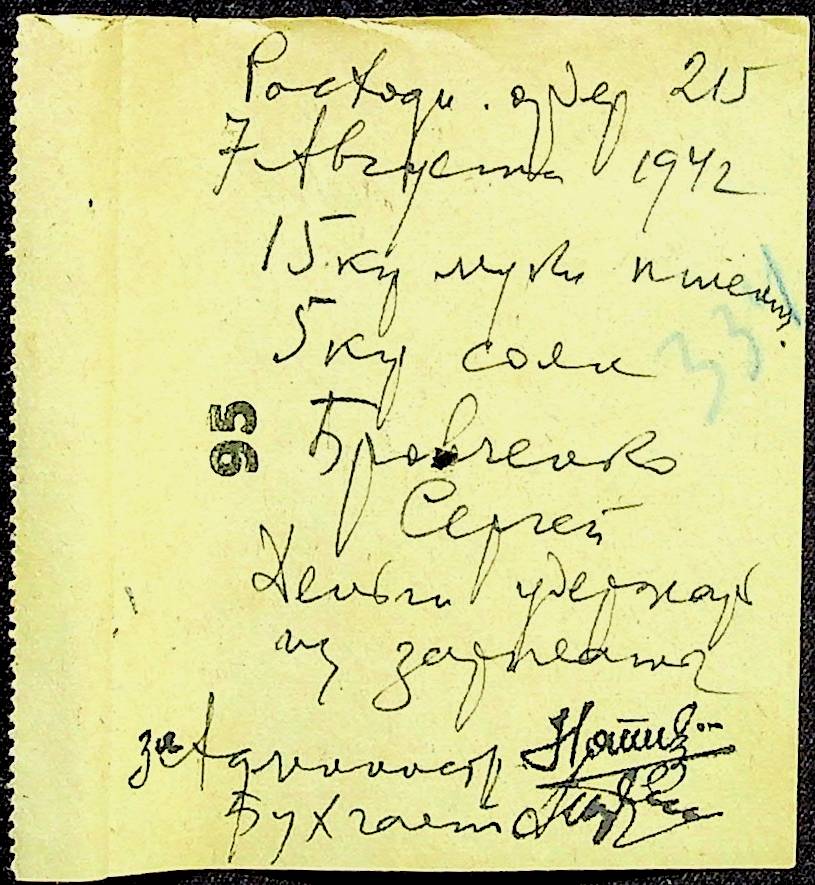 Расходн. ордер 215
7 Августа 1942
15 кг муки пшенич.
5 кг соли
331
95
Бровченко
Сергей
Деньги удержать
из зарплаты
за Администр
Бухгалт